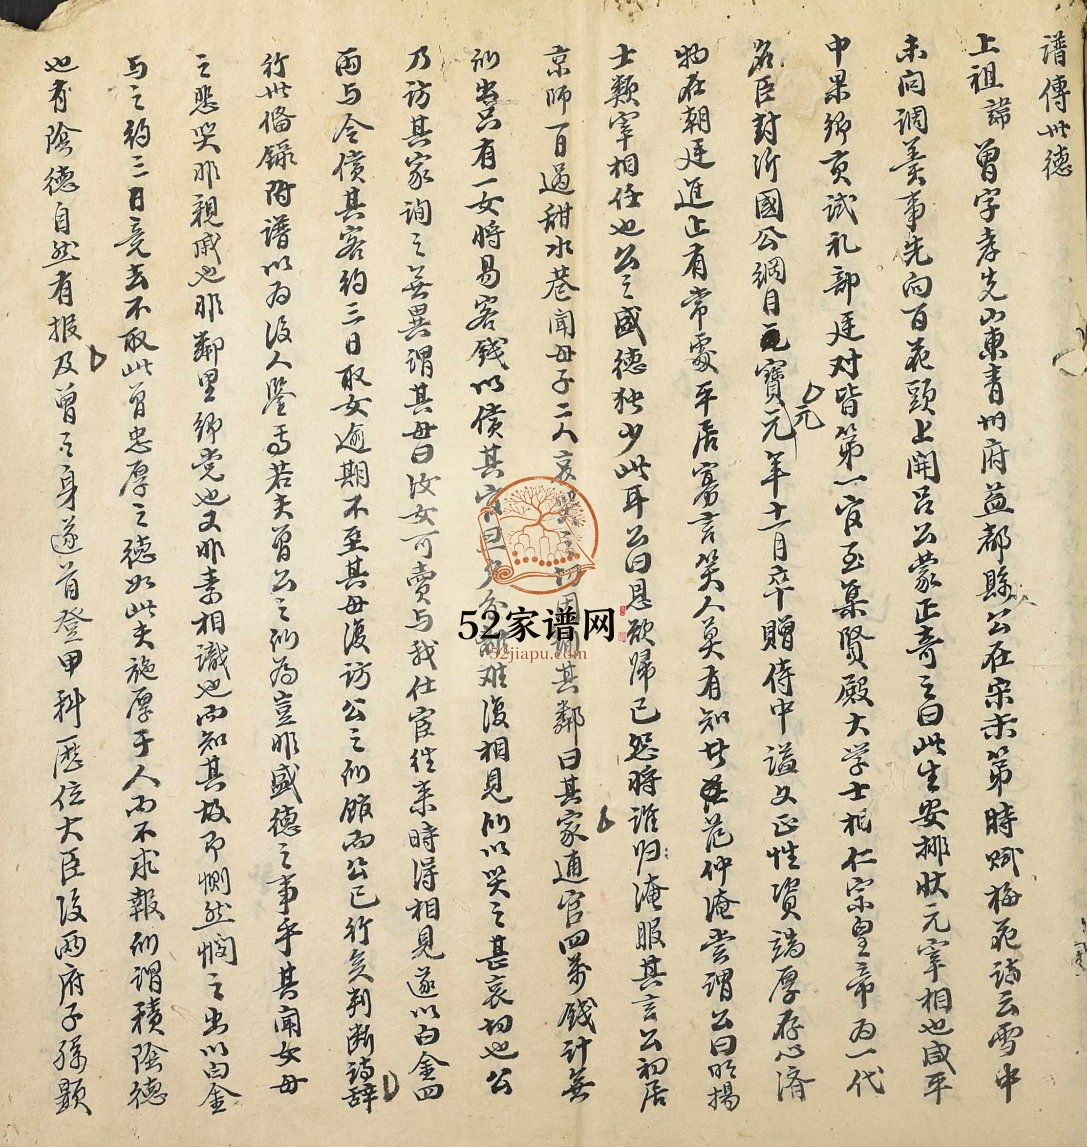 譜傳世德
上祖諱曾字孝先山東青州府益都縣人公在宋未第時賦梅花詩云雪中
未问調羹事先向百花頭上開呂公蒙正奇之曰此生安排狀元宰相也咸平
中果鄉貢試礼部廷对皆第一官至集賢殿大学士相仁宗皇帝为一代
名臣封沂國公綱目宝元元年十一月卒贈侍中謚文正性資端厚存心済
物在朝廷進止有常處平居寡言笑人莫有知其范仲淹嘗謂公曰明揚
士類宰相任也公之盛德独少此耳公曰恩欲歸已怨將谁归淹服其言公初居
京師一日過甜水巷聞母子二人哀哭其鄰曰其家逋官四萬錢計無
所出只有一女將易客錢以償其官難復相見所以哭之甚哀切也公
乃访其家詢之無異謂其母曰汝女可賣与我仕宦往来時得相見遂以白金四
两与令償其客约三日取女逾期不至其母復访公之所館而公已行矣判断詩辞
行世俻錄附譜以为後人鑒焉若夫曾公之所為豈非盛德之事乎其聞女母
之悲哭非親戚也非鄰里鄉党也又非素相識也而知其故即惻然憫之出以白金
与之約三日竟去不取此曾忠厚之德如此夫施厚于人而不求報所謂積陰德
也有陰德自然有报及曾之身遂首登甲科歷位大臣後两府子孫顯
52家谱网
52jiapu.com